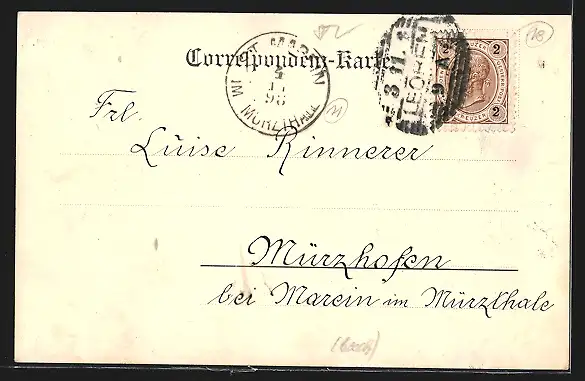 Correspondenz-Karte
ST. MAREIN
4
11
98
IM MÜRZTHALE
LEOBEN
3 11
9 A
2
2
KREUZER
18
Frl.
Luise Rinnerer
Mürzhofen
bei Marein im Mürzthale